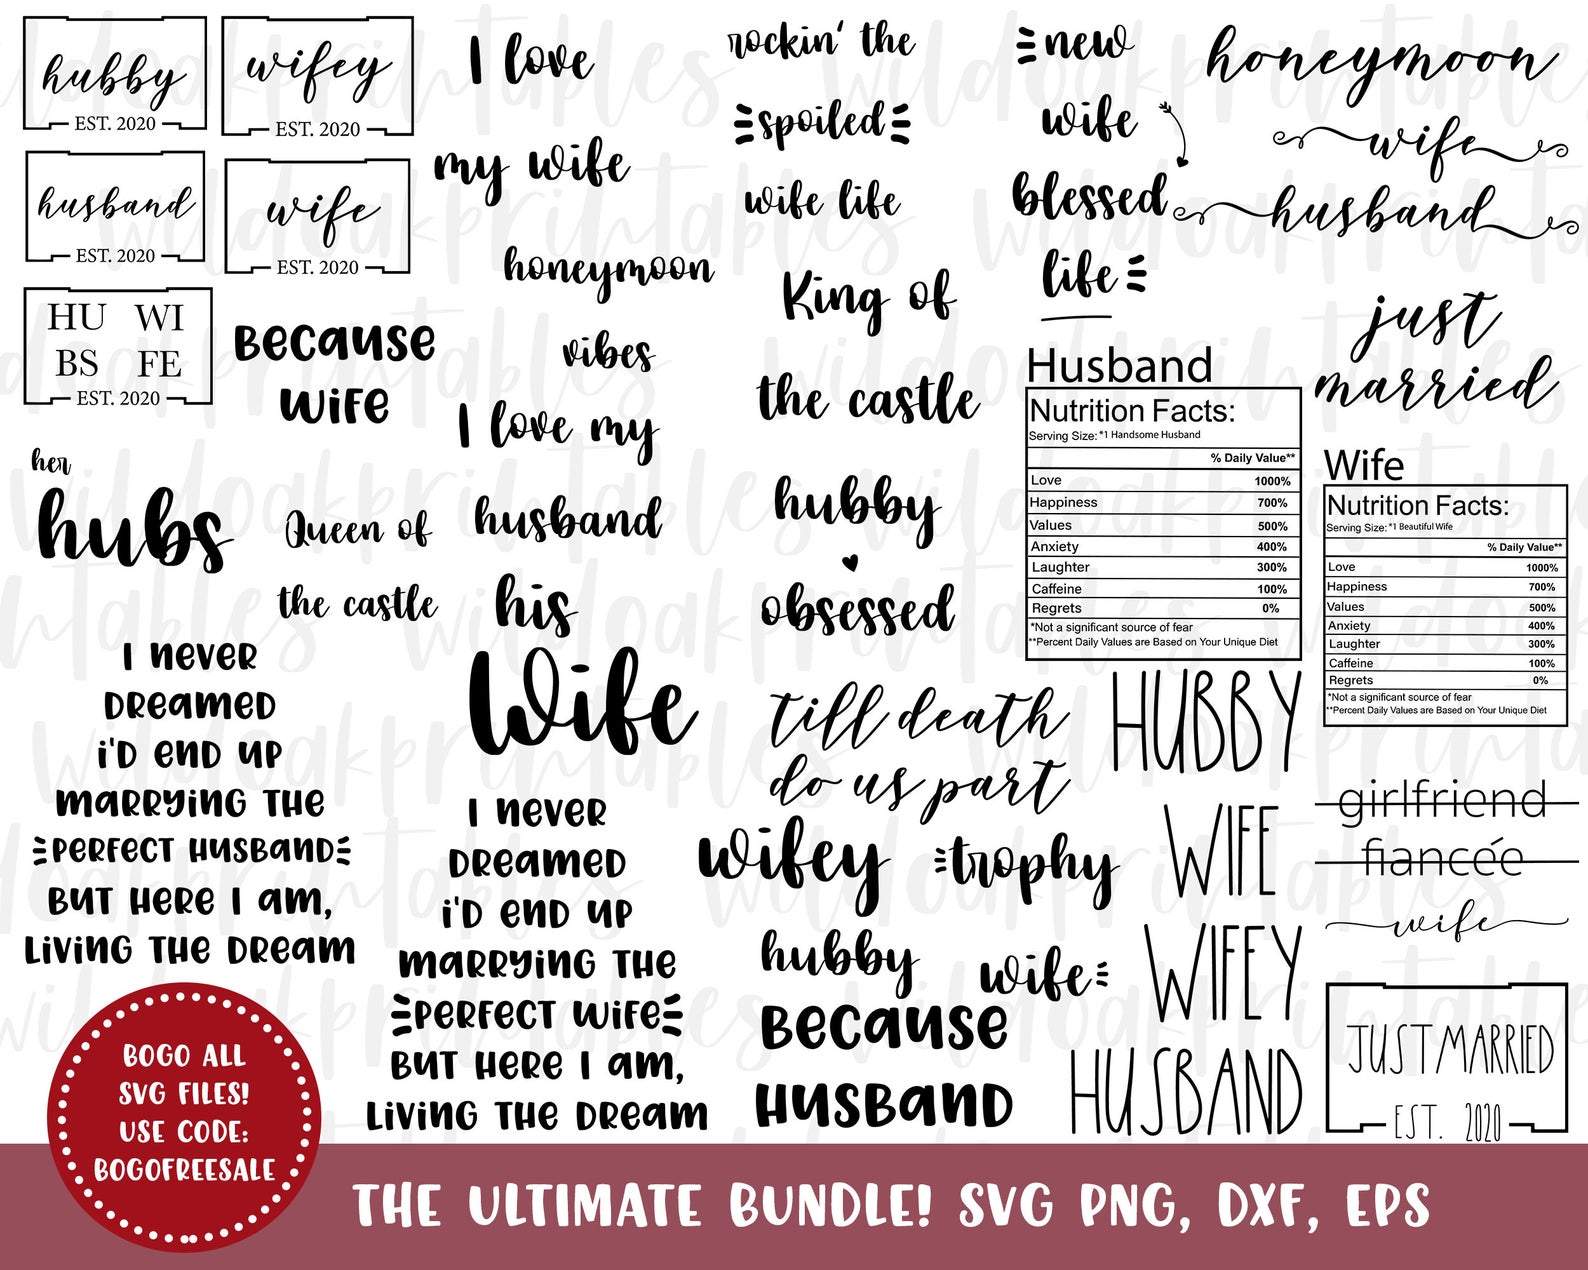 hubby
EST. 2020
wifey
EST. 2020
husband
EST. 2020
wife
EST. 2020
HU WI
BS FE
EST. 2020
Because
wife
her
hubs
Queen of
the castle
I love
my wife
honeymoon
vibes
I love my
husband
his
Wife
rockin' the
spoiled
wife life
King of
the castle
hubby
obsessed
new
wife
blessed
life
honeymoon
wife
husband
just
married
Husband
Nutrition Facts:
Serving Size: *1 Handsome Husband
% Daily Value**
Love 1000%
Happiness 700%
Values 500%
Anxiety 400%
Laughter 300%
Caffeine 100%
Regrets 0%
*Not a significant source of fear
**Percent Daily Values are Based on Your Unique Diet
Wife
Nutrition Facts:
Serving Size: *1 Beautiful Wife
% Daily Value**
Love 1000%
Happiness 700%
Values 500%
Anxiety 400%
Laughter 300%
Caffeine 100%
Regrets 0%
*Not a significant source of fear
**Percent Daily Values are Based on Your Unique Diet
I never
dreamed
i'd end up
marrying the
perfect husband
but here I am,
living the dream
I never
dreamed
i'd end up
marrying the
perfect wife
but here I am,
living the dream
till death
do us part
wifey
trophy
hubby
wife
Because
Husband
HUBBY
WIFE
WIFEY
HUSBAND
girlfriend
fiancée
wife
JUST MARRIED
EST. 2020
BOGO ALL
SVG FILES!
USE CODE:
BOGOFREESALE
THE ULTIMATE BUNDLE! SVG PNG, DXF, EPS
wildoakprintables